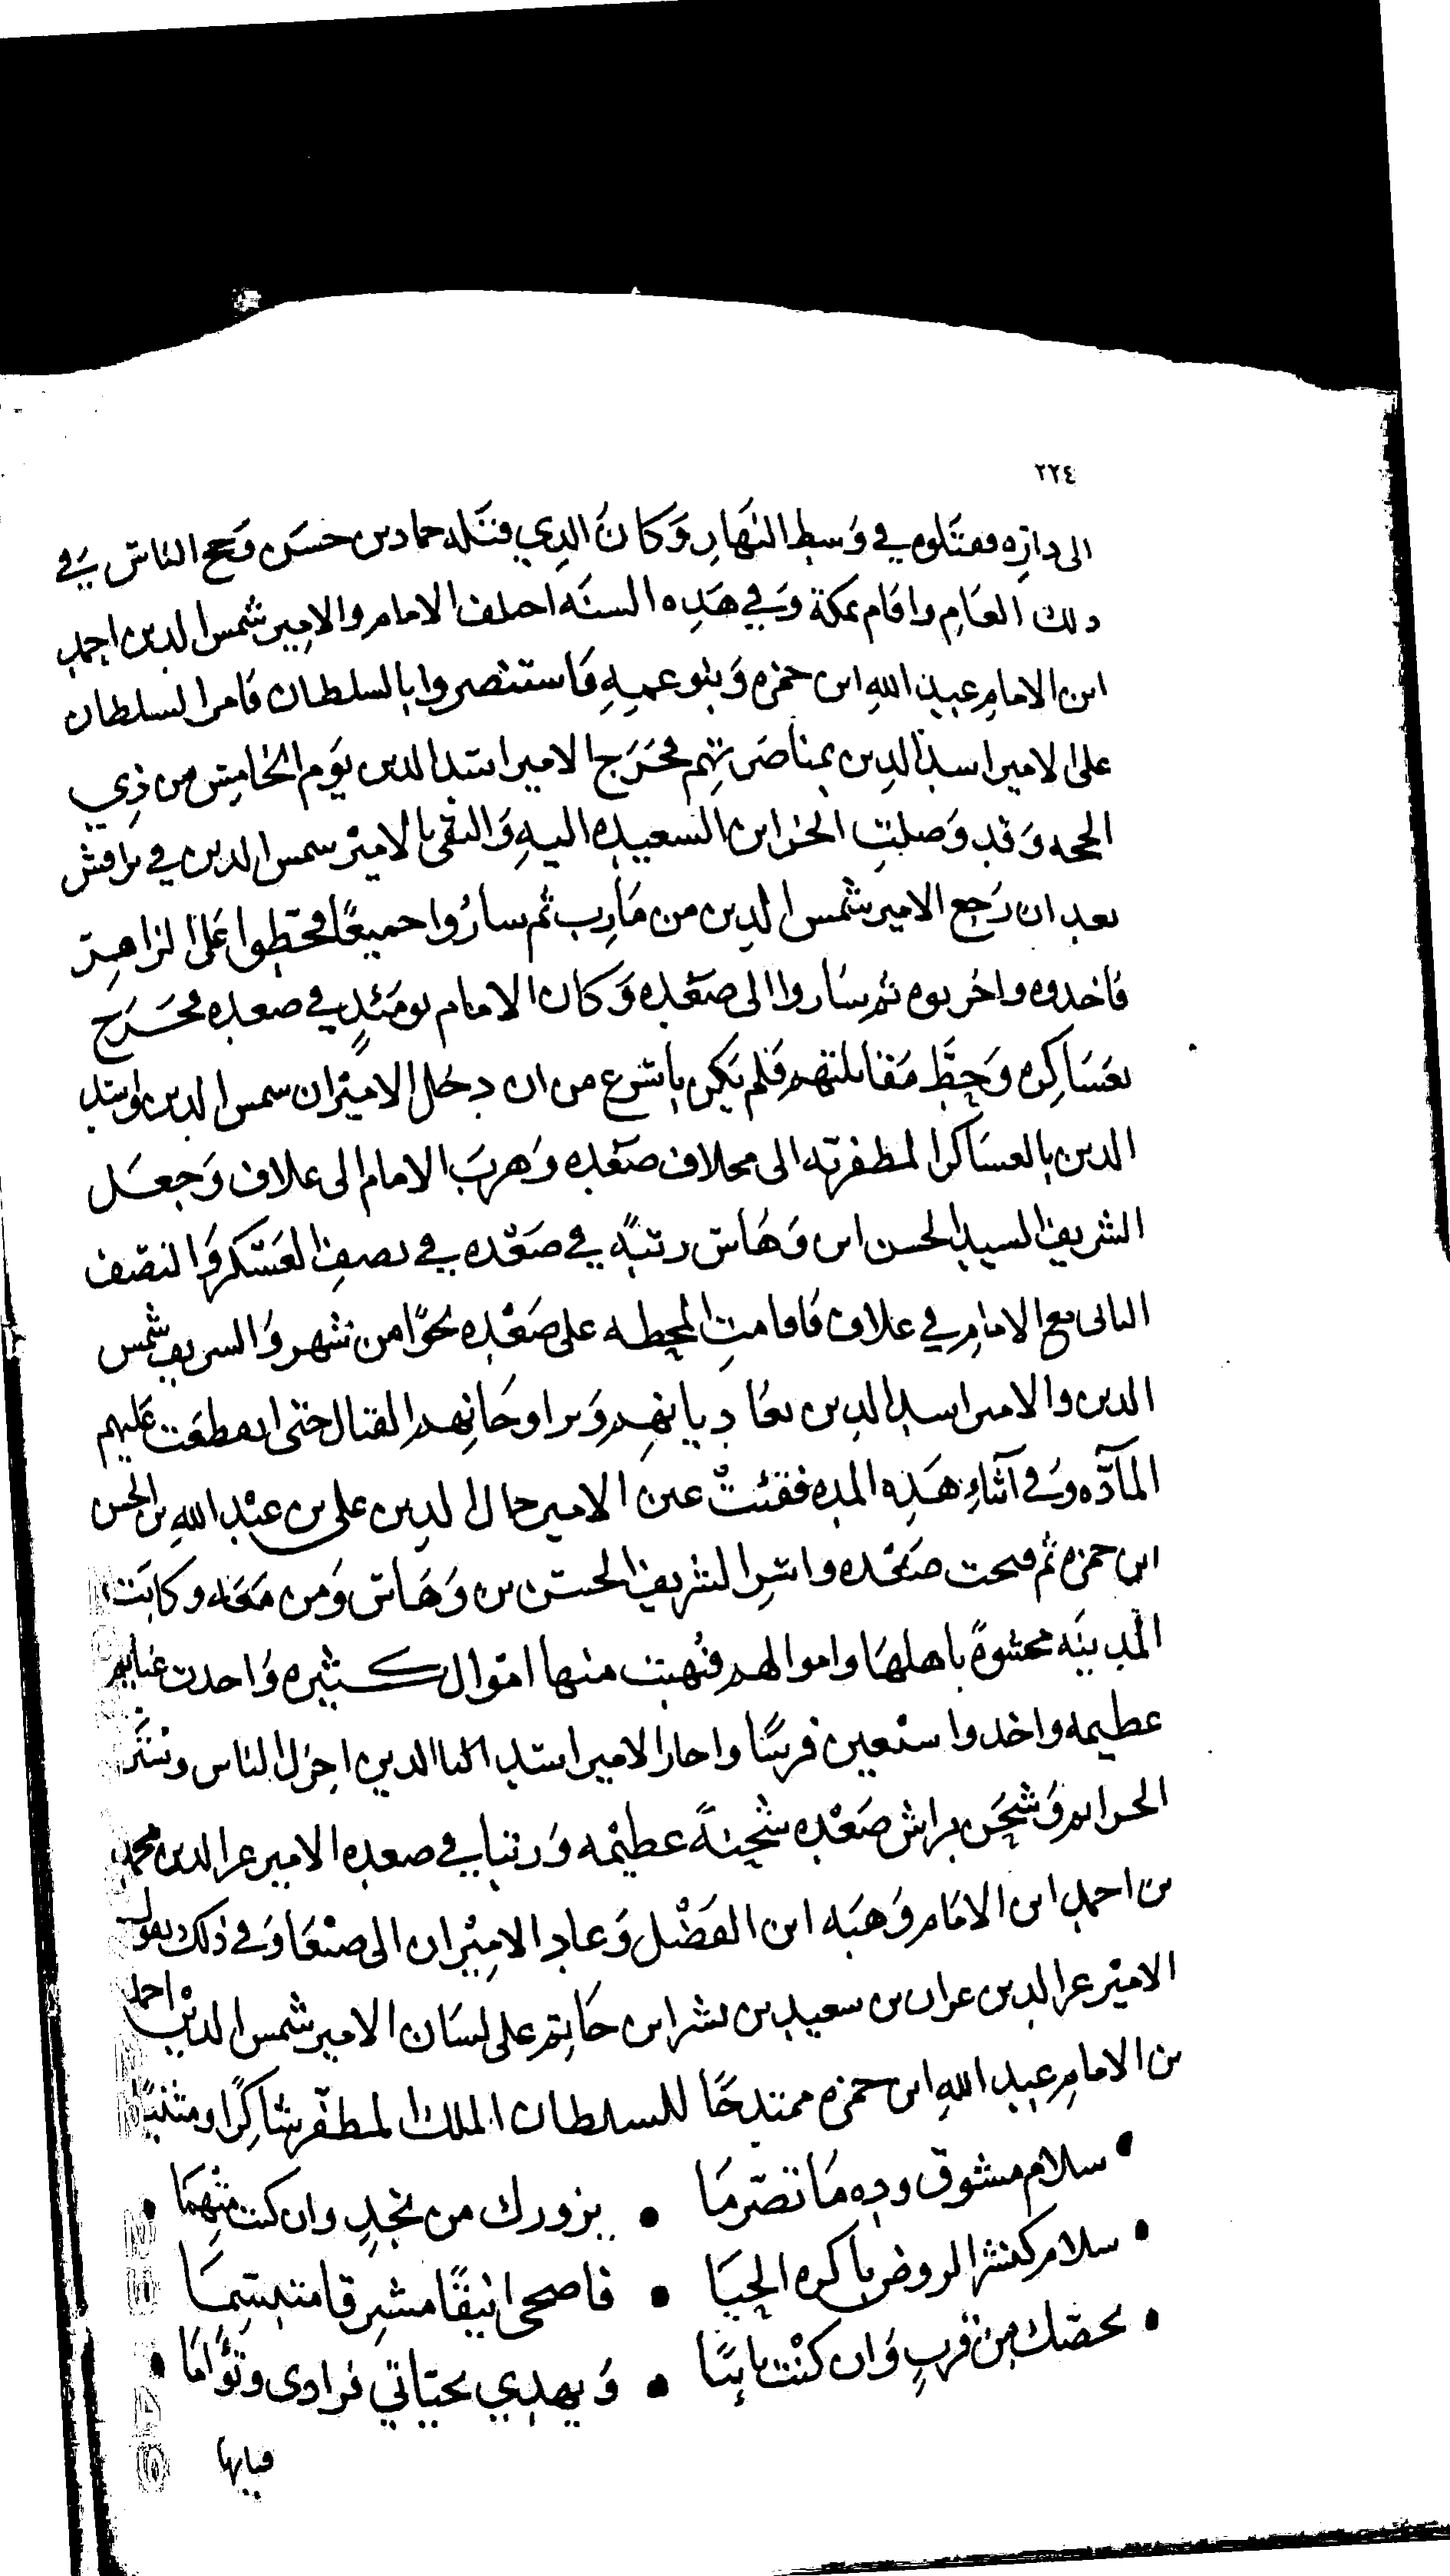 ٢٢٤
الى داره فقتلوه في وَسط النهَارِ وَكانَ الذِي قتَله حماد بن حسَن وَحج الناسُ في
ذلك العَامِ واقام بمكة وَفي هَذِه السنَه احلف الامام والامِير شمس الدين احمد
ابن الامامِ عبد اللهِ ابن حمزه وَبنو عمِهِ فَاستنصروا بالسلطان فامر السلطان
على الامير اسد الدين بمناصَرتهِم فخَرَج الامير اسَد الدين يَوم الخامِس من ذِي
الحجه وَقد وَصلتِ الخزاين السعيده اليهِ وَالتقى بالاميْر شمس الدين في براقش
بعد ان رَجع الامير شمس الدين من مَارب ثم سارُوا جميعًا فحَطوا عَلى الزاهِر
فاخذوه واخربوه ثم سَاروا الى صَعْده وَكان الامام يومَئذٍ في صعده فخَرَج
بعَسَاكِره وَحَطَّ مَقابلتهم فلم يَكن باسْرع من ان دخل الاميْران شمس الدين واسَد
الدين بالعسَاكر المظفريه الى مخلاف صَعْده وَهربَ الامام الى علاف وَجعَل
الشريف السيد الحسن ابن وَهّاس رتبةً في صَعْده في نصفِ العَسْكر وَالنصف
الثانى مع الامامِ في علاف فَاقامتِ المحطه على صَعْده نحوًا من شهر وَالسريف شمس
الدين والامير اسد الدين يعَادِيانهِم وَيراوحَانِهم القتال حتى انقطعَت عَليهم
المَآدّه وَفي آثناءِ هَذِه المده فقئتْ عين الامير جمال الدين علي بن عبْد اللهِ بن الحسن
ابن حمزه ثم فتحت صَعْده واسِر الشريف الحسَن بن وَهَاس وَمن مَعَه وكانَت
المَدينَه محشوةً باهلهَا واموالهم فنُهبت منها امَوال كثيره وَاخذت غنايم
عطيمه واخذوا سبْعين فرسًا واجار الامير اسَد الدين اجزل الناس وسَتَر
الحرايم وَشَحَن براش صَعْده شحنةً عظيْمه وَرتبا في صعده الامير عز الدين محمد
بن احمد ابن الامَام وَهبَه ابن الفَضْل وَعاد الاميْران الى صنْعَا وَفي ذلك يقول
الاميْر عز الدين عزان بن سعيد بن بشر ابن حَاتِم على لسَان الامير شمس الدين احمد
بن الامامِ عبد اللهِ ابن حمزه ممتدحًا للسلطان الملك المظفّر شاكِرًا ومثنيًا
سلام مشوق وده مَا تصّرمَا • يزورك من نجدٍ وان كنت متْهِمَا
سلام كنشر الروض باكره الحيَا • فاضحى انيقًا مشرقا متبسِّمَا
يخصّك من قربٍ وَان كنْت نائيًا • وَيهدِي تحيّاتي فرادى وتؤامَا
فيايها